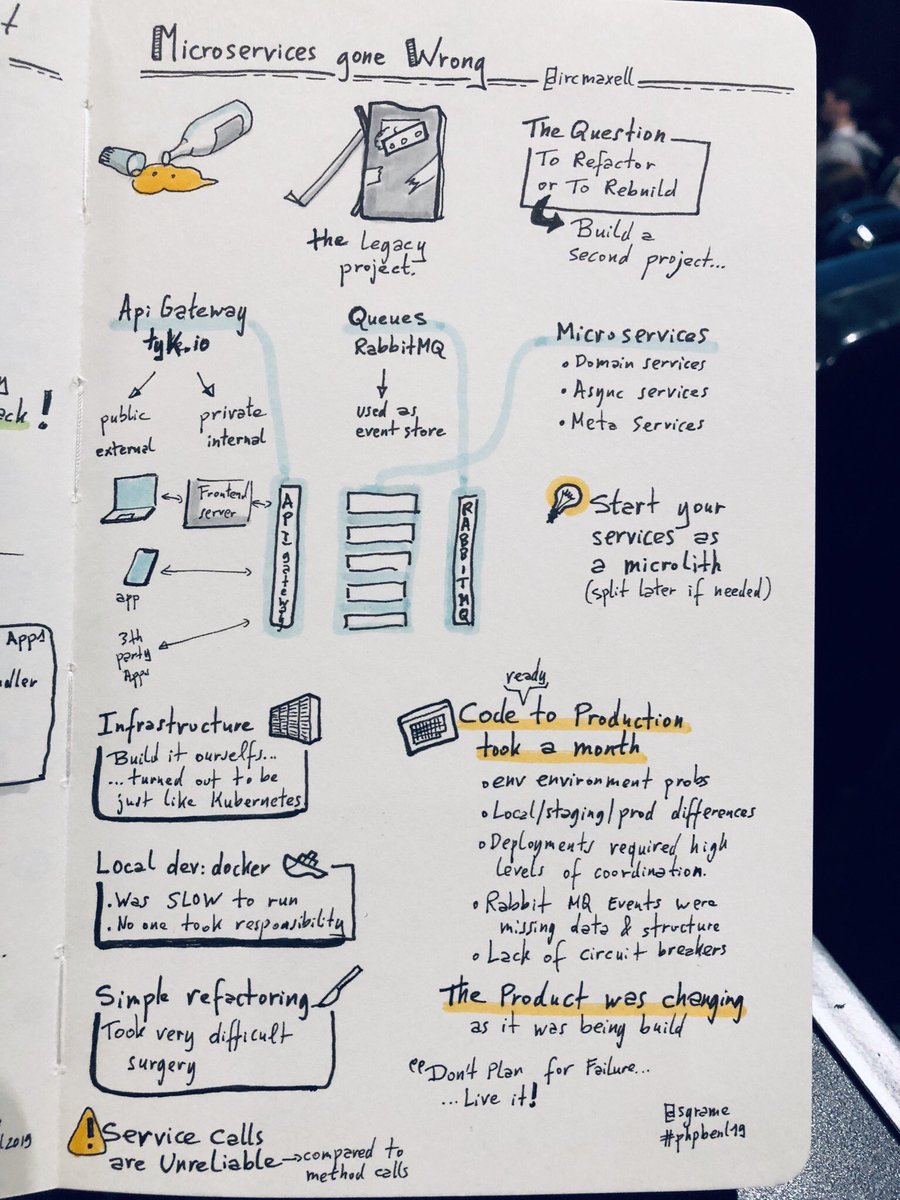 Microservices gone Wrong
@ircmaxell
the Legacy
project.
The Question
To Refactor
or To Rebuild
Build a
second project...
Api Gateway
tyk.io
public
external
private
internal
Queues
RabbitMQ
used as
event store
Microservices
• Domain services
• Async services
• Meta Services
Frontend
server
API gateway
RABBITMQ
app
3th
party
Apps
Start your
services as
a microlith
(split later if needed)
Infrastructure
Build it ourselfs...
...turned out to be
just like Kubernetes
Local dev: docker
• Was SLOW to run
• No one took responsibility
Simple refactoring
Took very difficult
surgery
! Service calls
are Unreliable → compared to
method calls
ready
Code to Production
took a month
• env environment probs
• Local/staging/prod differences
• Deployments required high
levels of coordination.
• Rabbit MQ Events were
missing data & structure
• Lack of circuit breakers
The Product was changing
as it was being build
"Don't Plan for Failure...
...Live it!
@sgrame
#phpbenl19
ack!
Apps
dler
2019